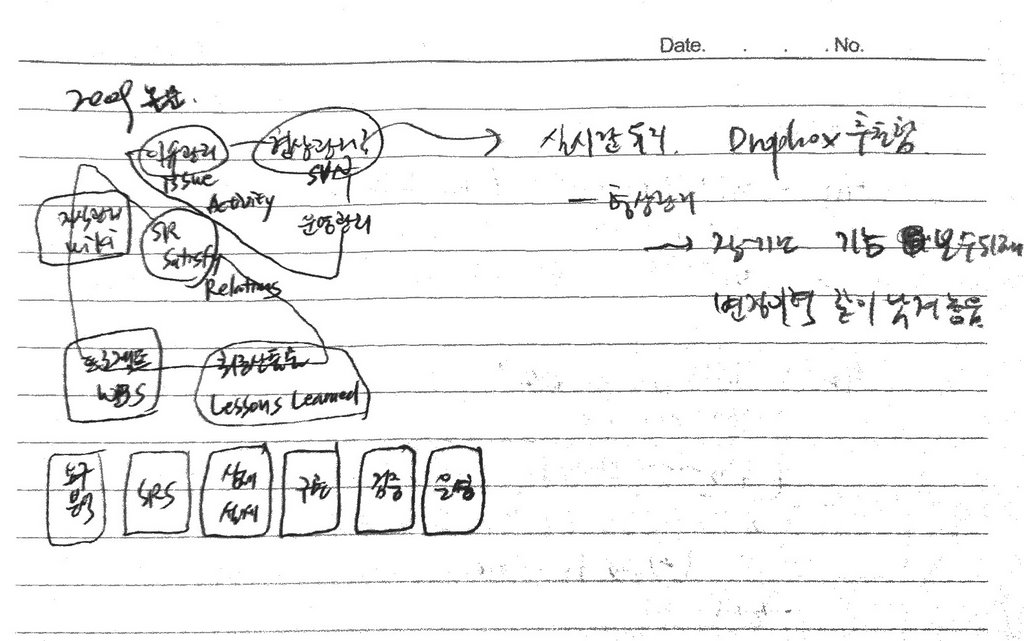 Date. . . . No.
2009 논문.
이슈관리
Issue
형상관리
SVN
실시간 동기. Dropbox 추천함
Activity
운영관리
형상관리
지식관리
wiki
SR
Satisfy
Relations
→ 기능
변경이력 같이 남겨놓음
프로젝트
WBS
최종산출물
Lessons Learned
요구
분석
SRS
상세
설계
구현
검증
운영